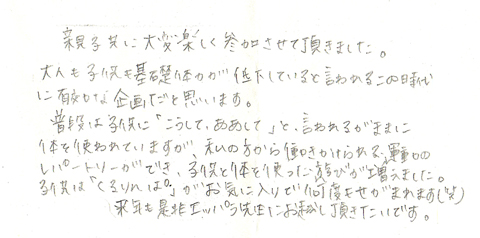 親子共に大変楽しく参加させて頂きました。
大人も子供も基礎体力が低下していると言われるこの時代
に有効な企画だと思います。
普段は子供に「こうして、ああして」と、言われるがままに
体を使われていますが、私の方から働きかけられる運動の
レパートリーができ、子供と体を使った遊びが増えました。
子供は「くるりんぱ」がお気に入りで何度もせがまれます(笑)
来年も是非エッパラ先生にお越し頂きたいです。